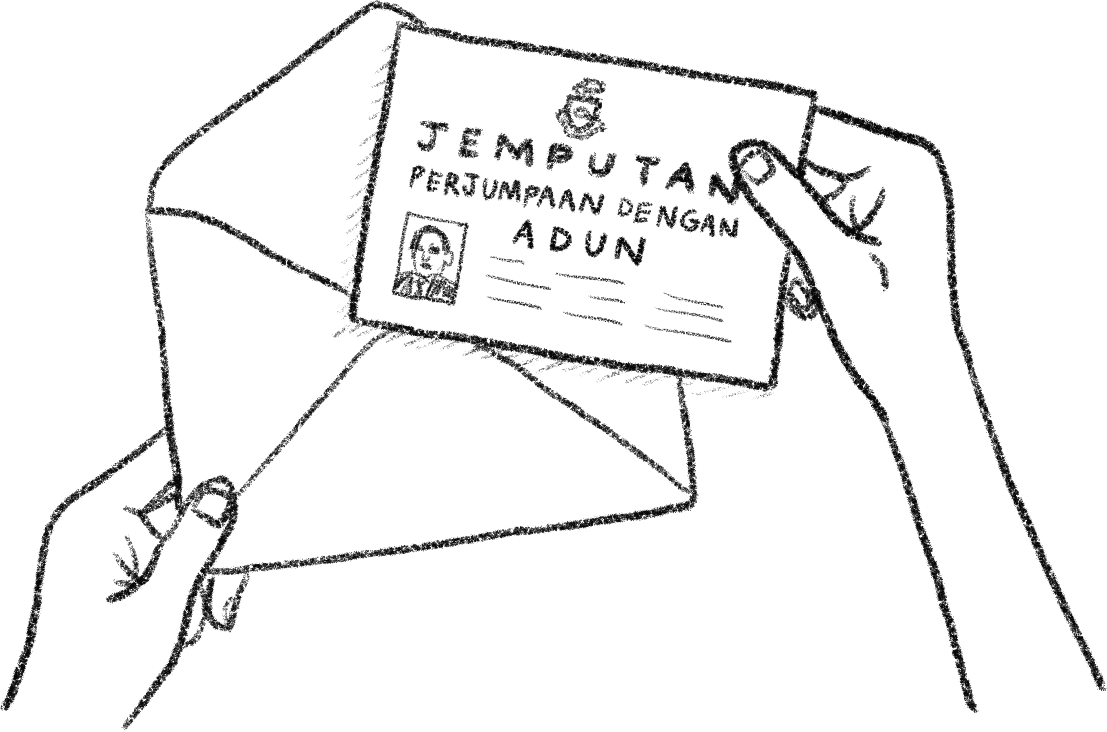 JEMPUTAN
PERJUMPAAN DENGAN
ADUN